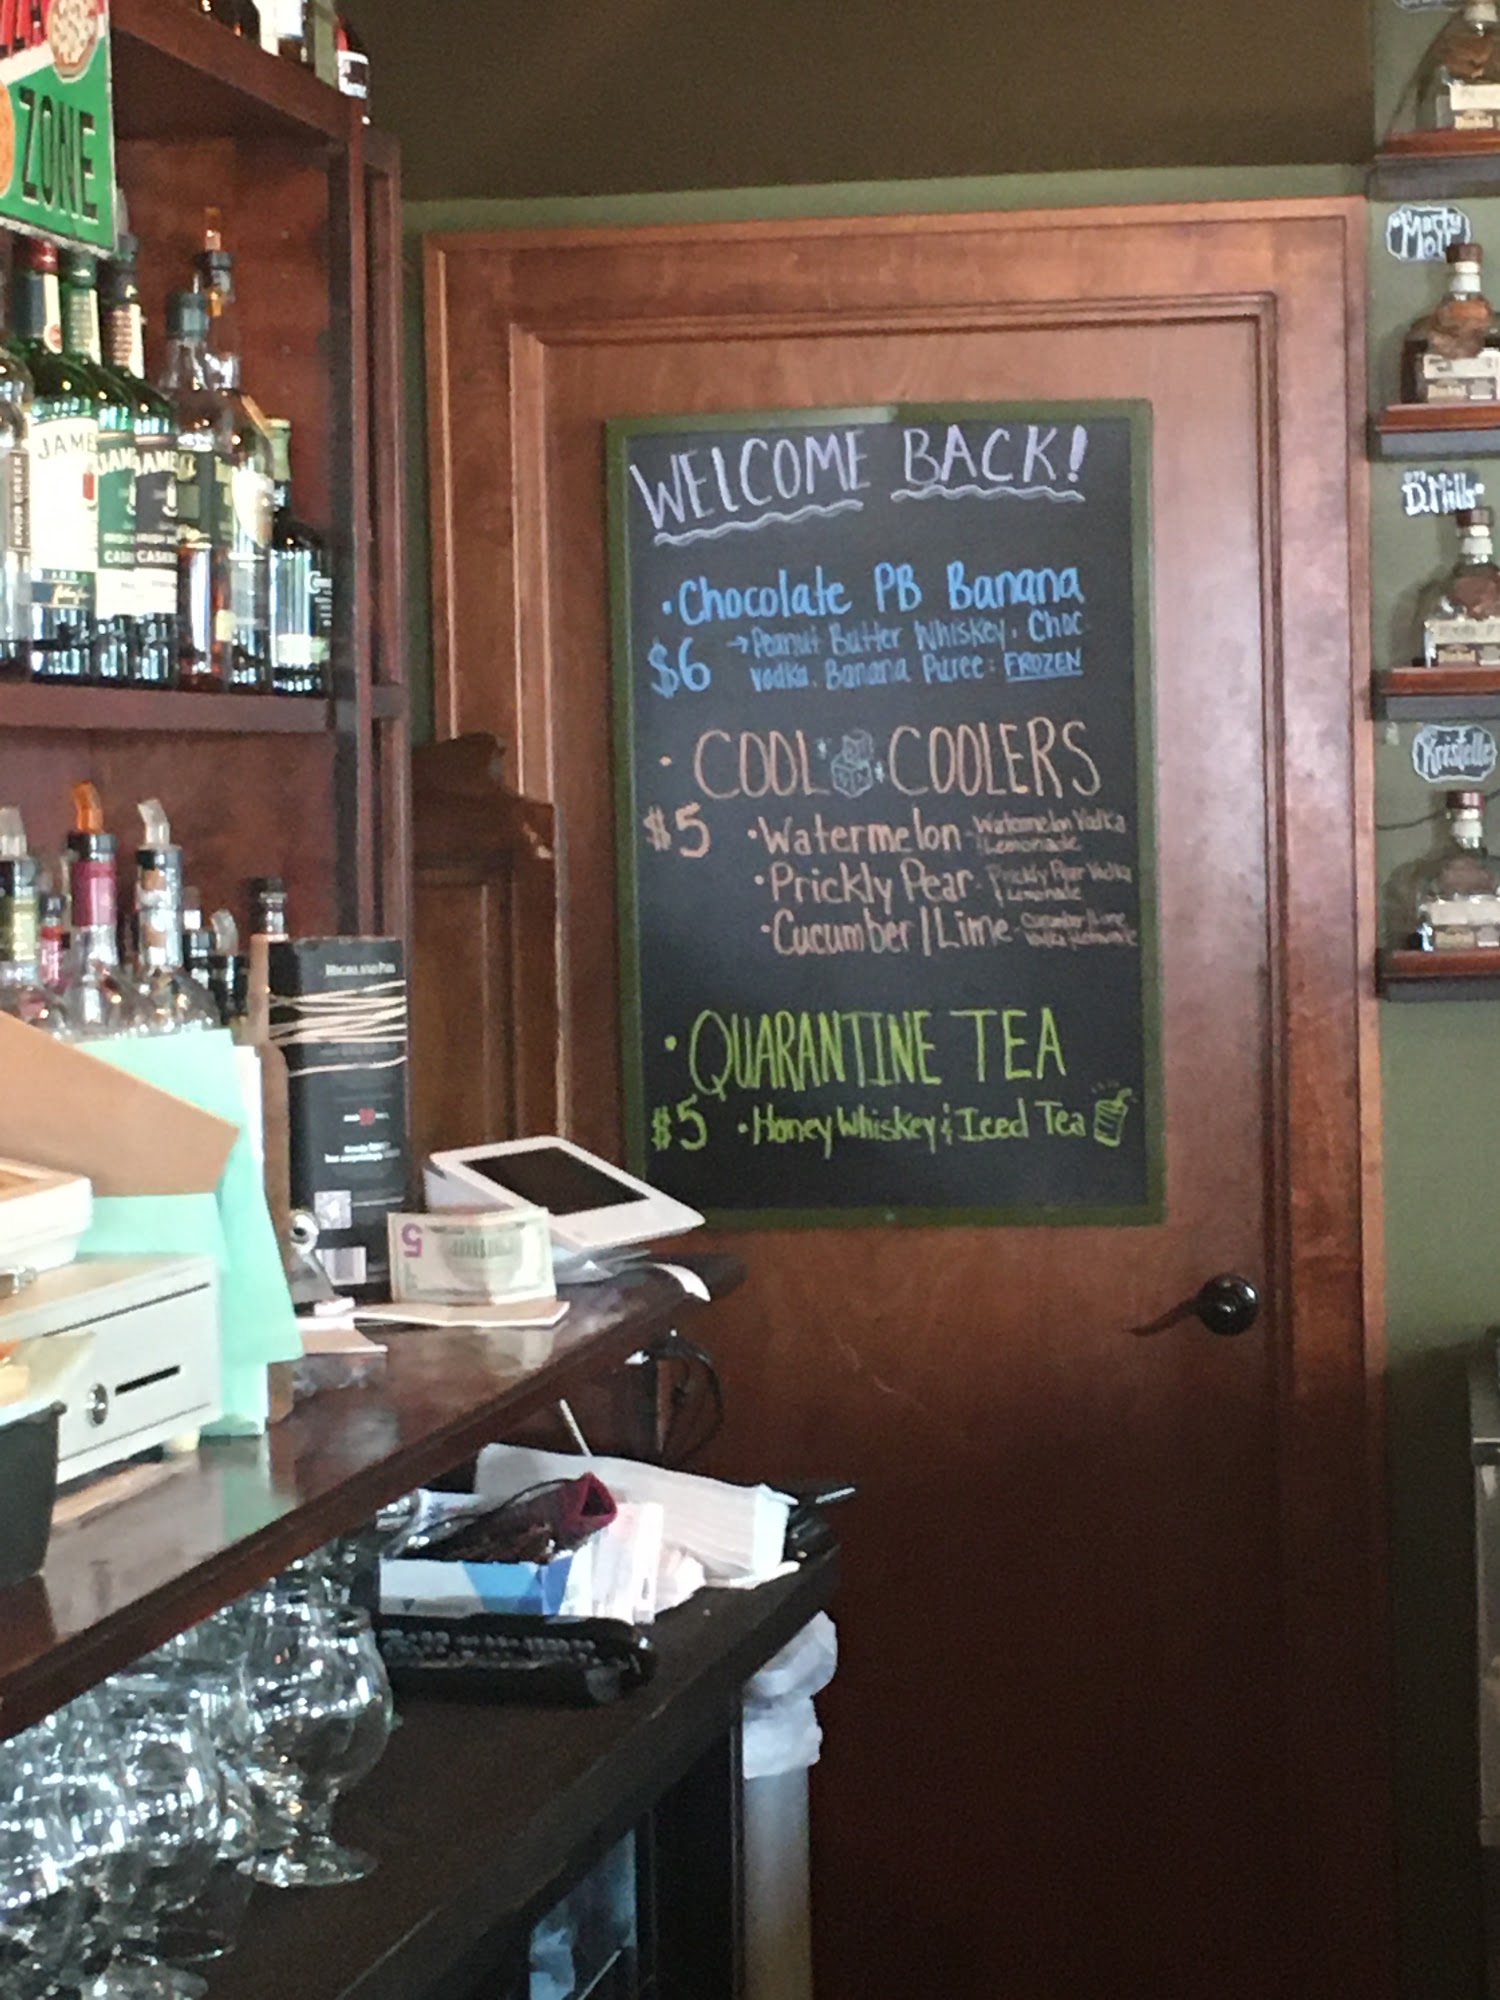 ZONE
JAME
JAM
JAME
CASK
WELCOME BACK!
• Chocolate PB Banana
$6 → Peanut Butter Whiskey. Choc
Vodka. Banana Puree: FROZEN
• COOL COOLERS
$5 • Watermelon - Watermelon Vodka
Lemonade
• Prickly Pear - Prickly Pear Vodka
Lemonade
• Cucumber/Lime - Cucumber/Lime
Vodka
• QUARANTINE TEA
$5 • Honey Whiskey & Iced Tea
5
D.Mills
Kristelle